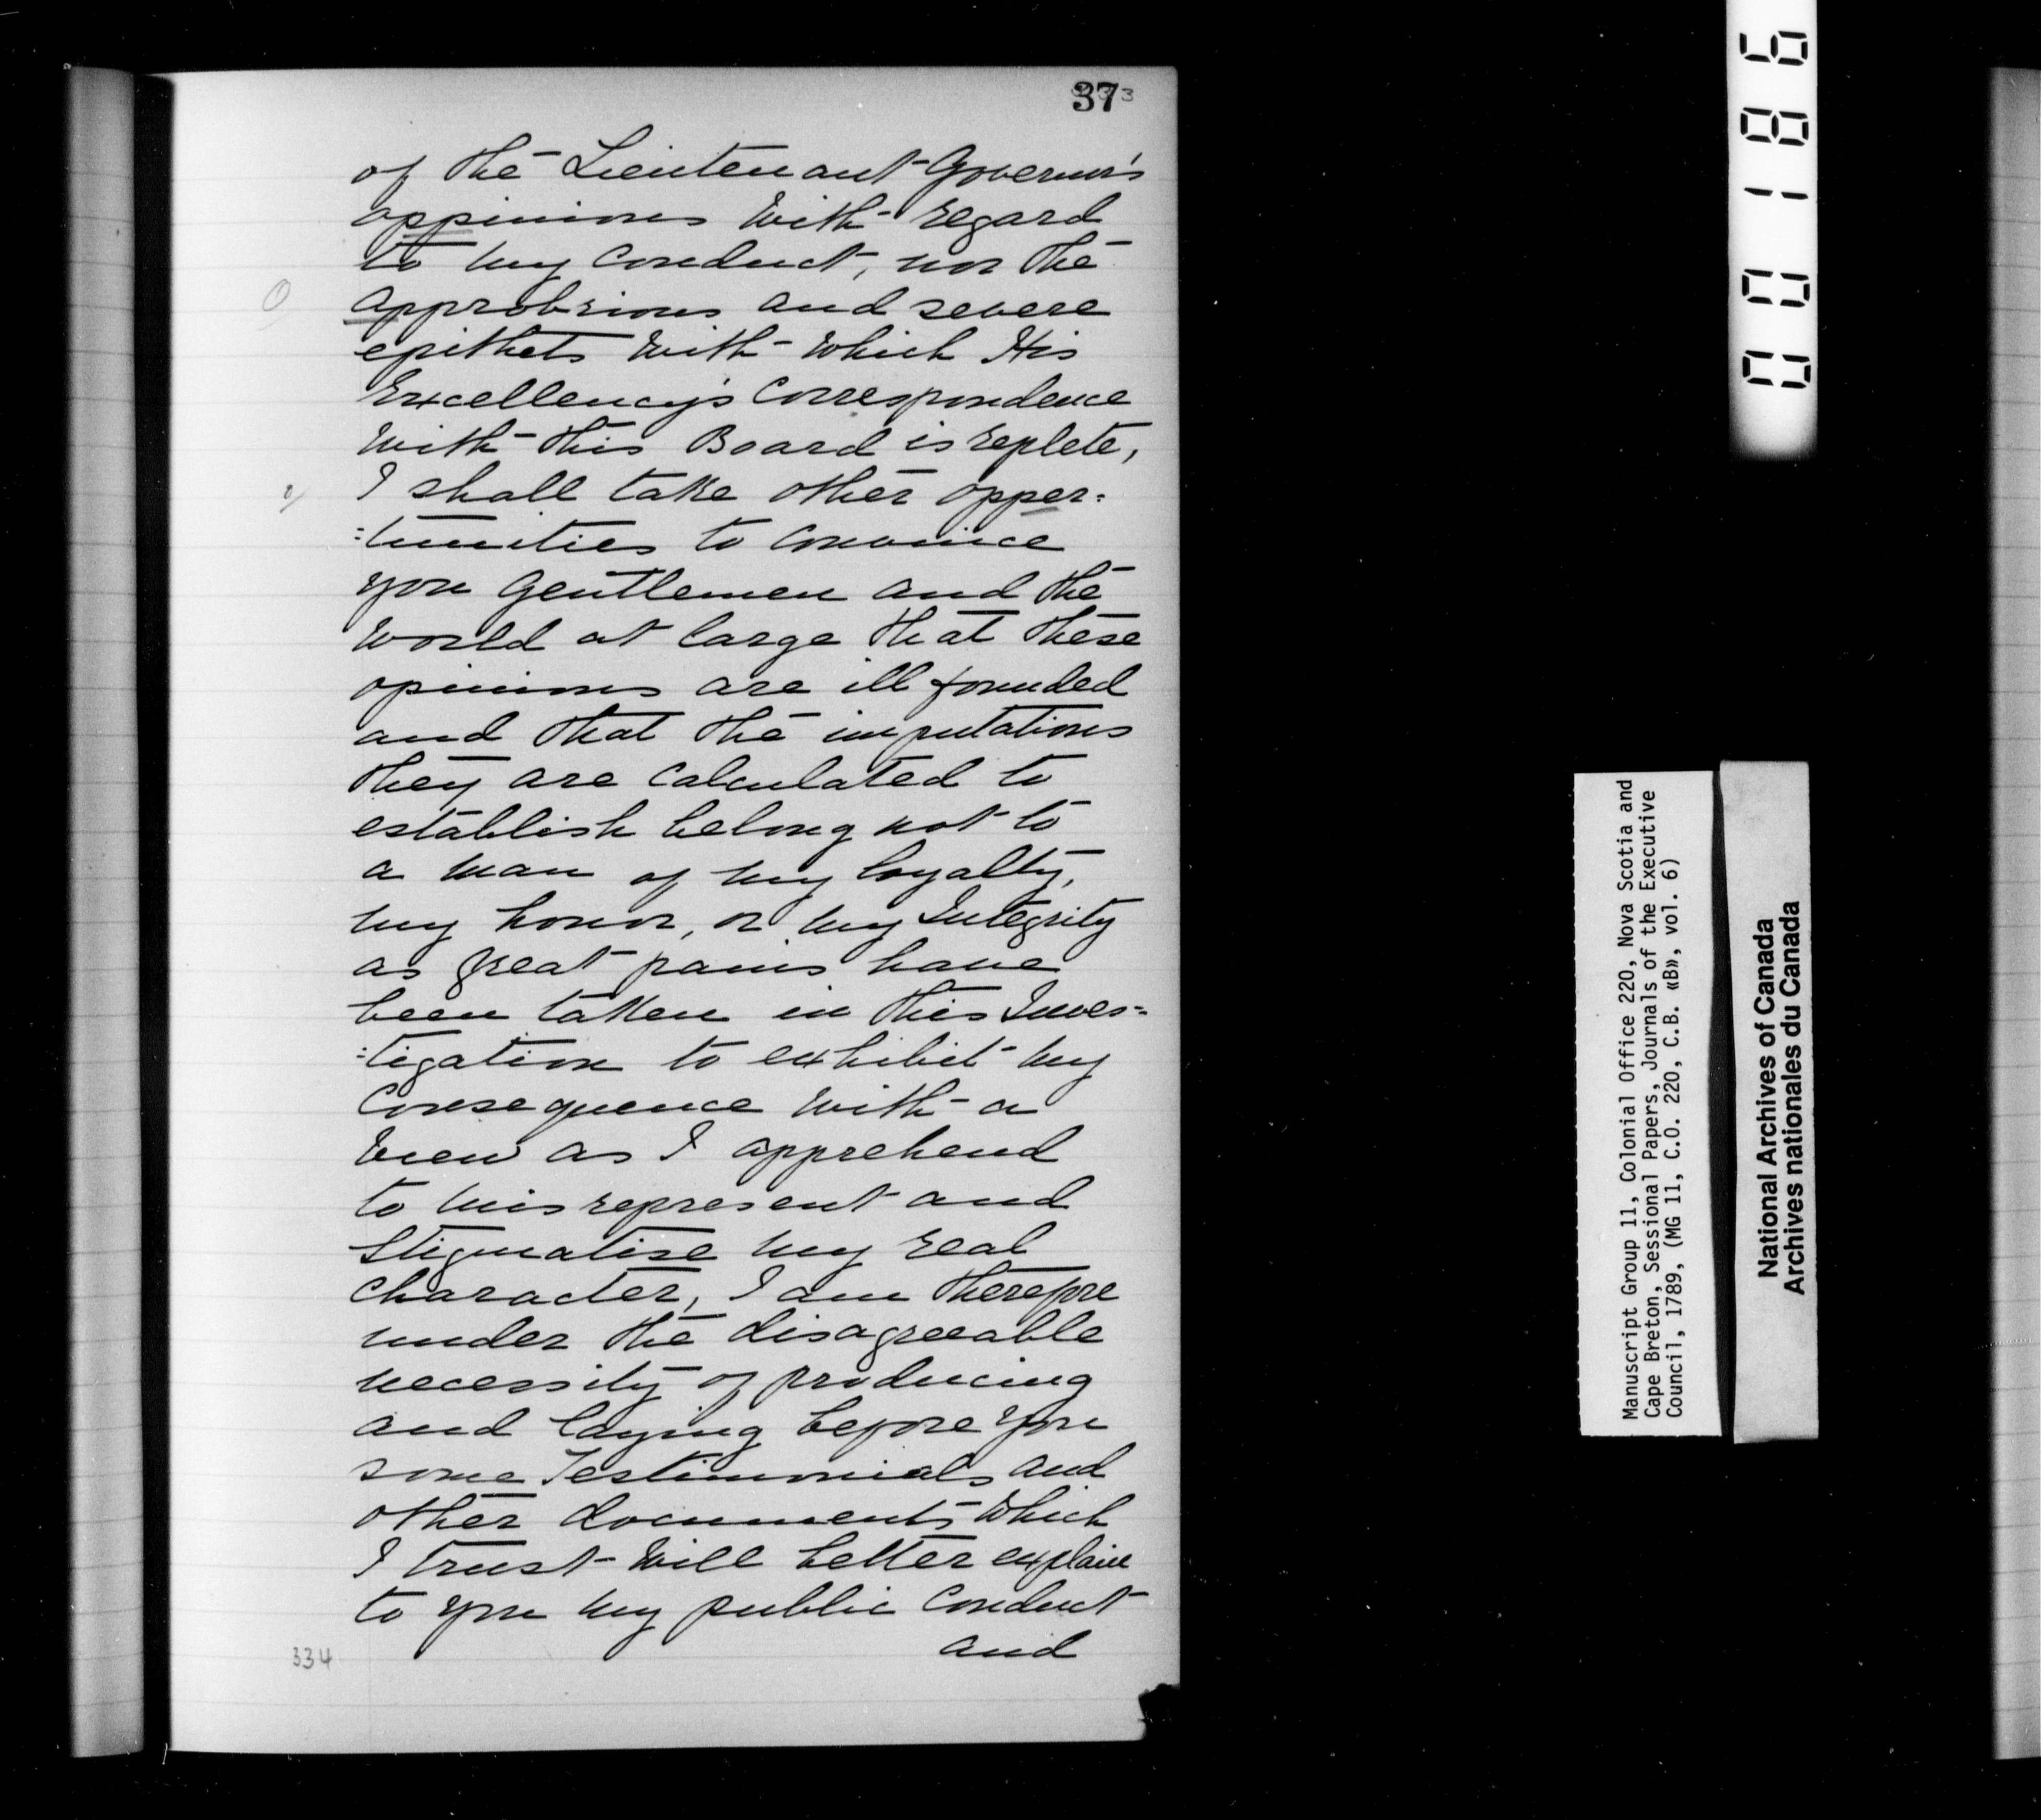 37
of the Lieutenant-Governor's
oppinions with regard
to my Conduct, nor the
O
approbrious and severe
epithets with which His
Excellency's Correspondence
with this Board is replete,
I shall take other opper=
=tunities to Convince
you Gentlemen and the
World at large that these
opinions are ill founded
and that the imputations
they are Calculated to
establish belong not to
a man of my loyalty,
my honor, or my Integrity
as great pains have
been taken in this Inves=
=tigation to exhibit my
Consequence with a
view as I apprehend
to misrepresent and
Stigmatise my real
Character, I am therefore
under the disagreeable
necessity of producing
and laying before you
some Testimonials and
other documents which
I trust will better explain
to you my public Conduct
and
334
00186
Manuscript Group 11, Colonial Office 220, Nova Scotia and
Cape Breton, Sessional Papers, Journals of the Executive
Council, 1789, (MG 11, C.O. 220, C.B. «B», vol. 6)
National Archives of Canada
Archives nationales du Canada